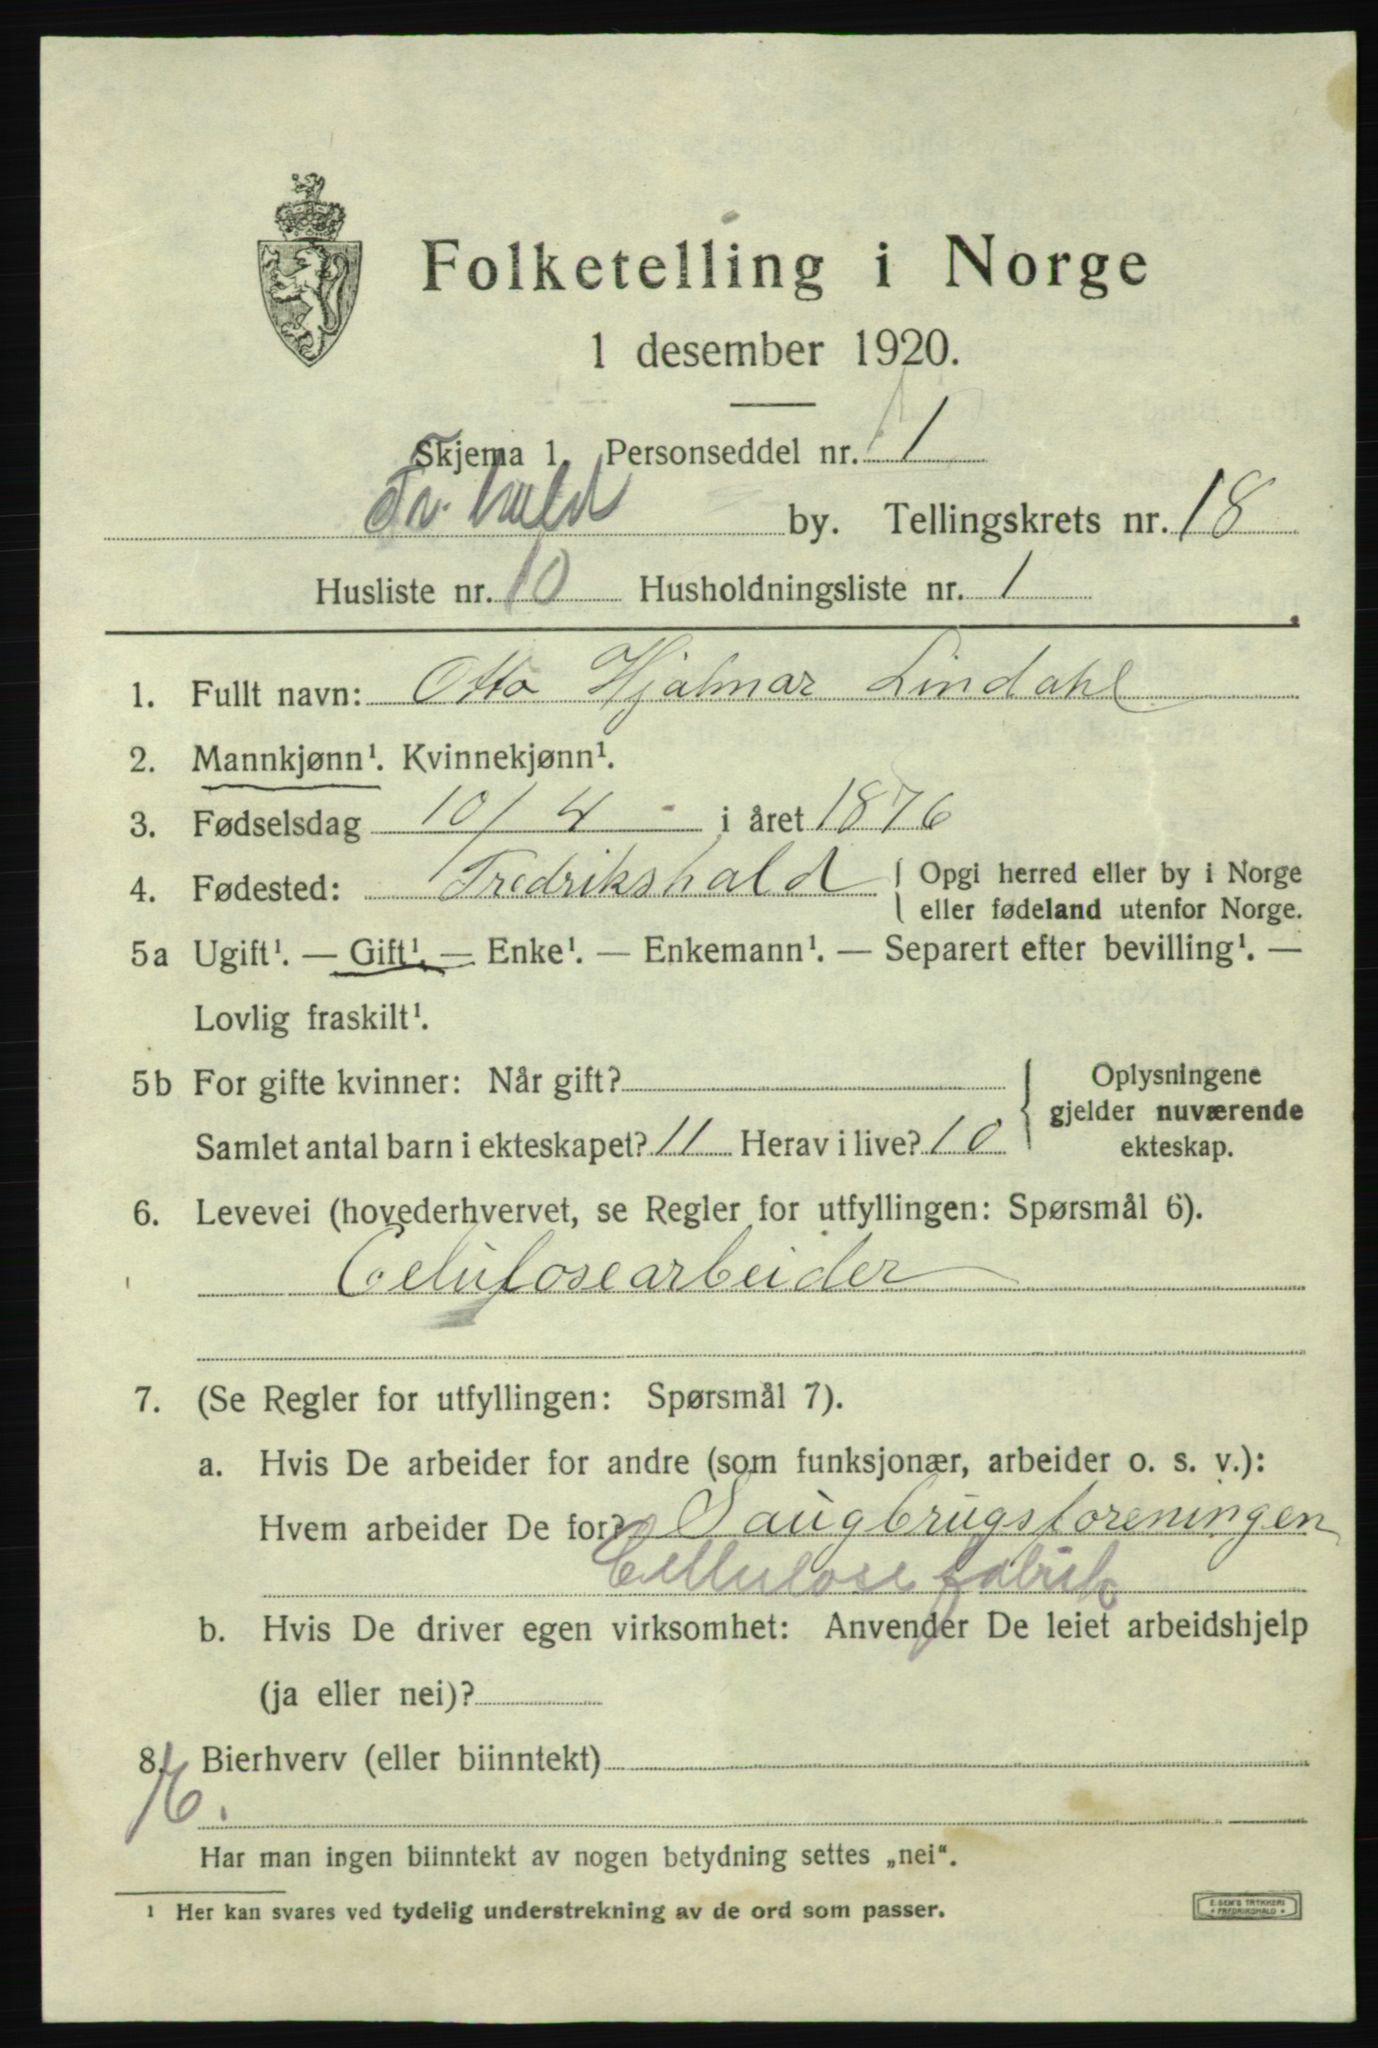 Folketelling i Norge
1 desember 1920.
Skjema 1. Personseddel nr. 1
Fr.hald by. Tellingskrets nr. 18
Husliste nr. 10 Husholdningsliste nr. 1
1. Fullt navn: Otto Hjalmar Lindahl
2. Mannkjønn¹. Kvinnekjønn¹.
3. Fødselsdag 10/4 i året 1876
4. Fødested: Fredrikshald { Opgi herred eller by i Norge
eller fødeland utenfor Norge.
5a Ugift¹. — Gift¹. — Enke¹. — Enkemann¹. — Separert efter bevilling¹. —
Lovlig fraskilt¹.
5b For gifte kvinner: Når gift?
Samlet antal barn i ekteskapet? 11 Herav i live? 10
Oplysningene
gjelder nuværende
ekteskap.
6. Levevei (hovederhvervet, se Regler for utfyllingen: Spørsmål 6).
Celulosearbeider
7. (Se Regler for utfyllingen: Spørsmål 7).
a. Hvis De arbeider for andre (som funksjonær, arbeider o. s. v.):
Hvem arbeider De for? Saugbrugsforeningen
Cellulosefabrik
b. Hvis De driver egen virksomhet: Anvender De leiet arbeidshjelp
(ja eller nei)?
8. Bierhverv (eller biinntekt)
Har man ingen biinntekt av nogen betydning settes „nei“.
1 Her kan svares ved tydelig understrekning av de ord som passer.